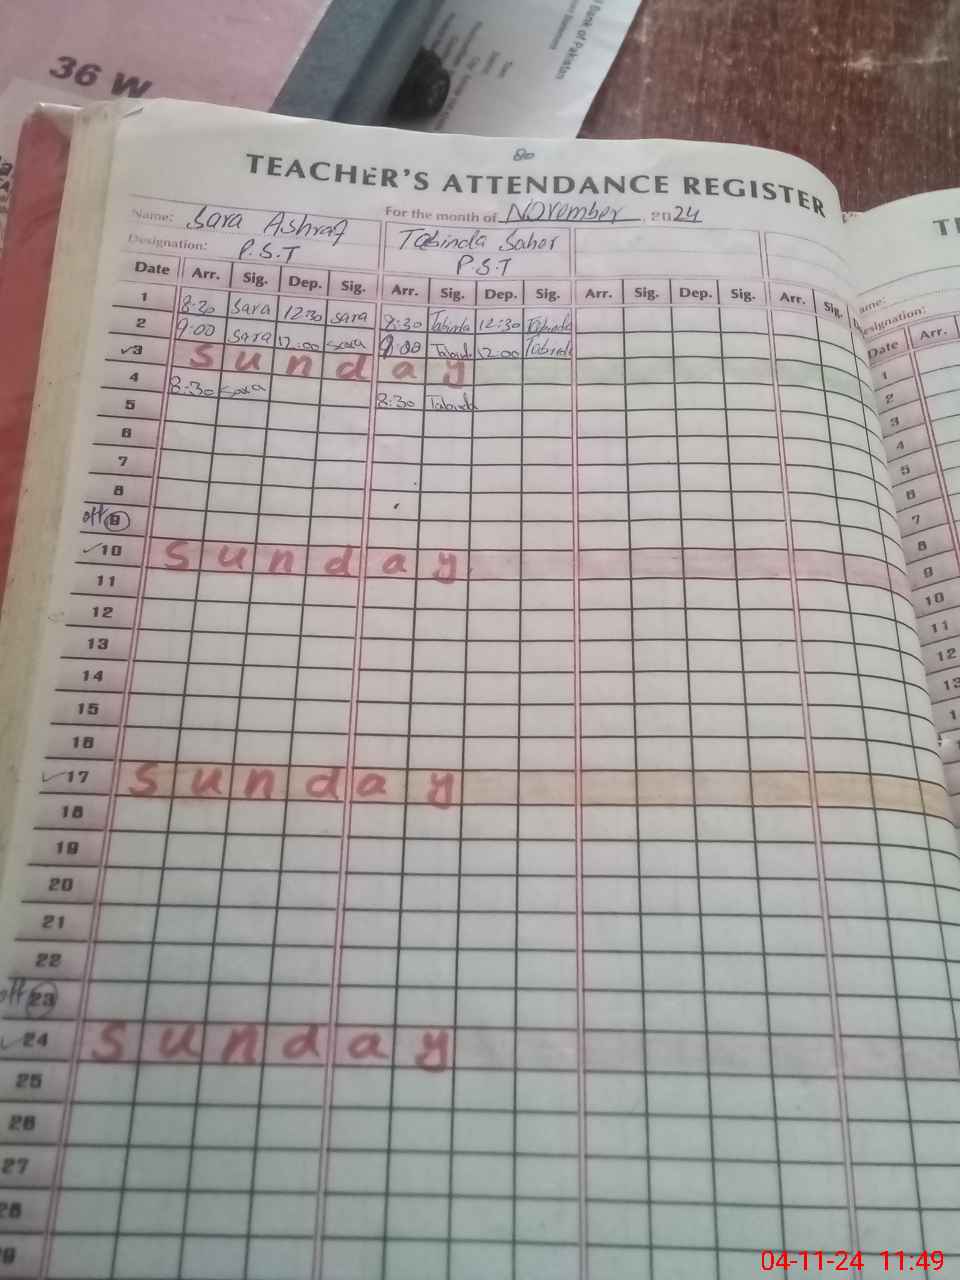 36 W
Bank of Pakistan
80
TEACHER'S ATTENDANCE REGISTER
Name: Sara Ashraf For the month of November, 2024
Designation: P.S.T Tabinda Sahar
P.S.T
Date Arr. Sig. Dep. Sig. Arr. Sig. Dep. Sig. Arr. Sig. Dep. Sig. Arr. Sig.
1 8:30 Sara 12:30 Sara 8:30 Tabinda 12:30 Tabinda
2 9:00 Sara 12:00 Sara 9:00 Tabinda 12:00 Tabinda
3 Sunday
4 8:30 Sara 8:30 Tabinda
5
6
7
8
off 9
10 Sunday
11
12
13
14
15
16
17 Sunday
18
19
20
21
22
off 23
24 Sunday
25
26
27
28
29
Designation:
Date Arr.
1
2
3
4
5
6
7
8
9
10
11
12
04-11-24 11:49